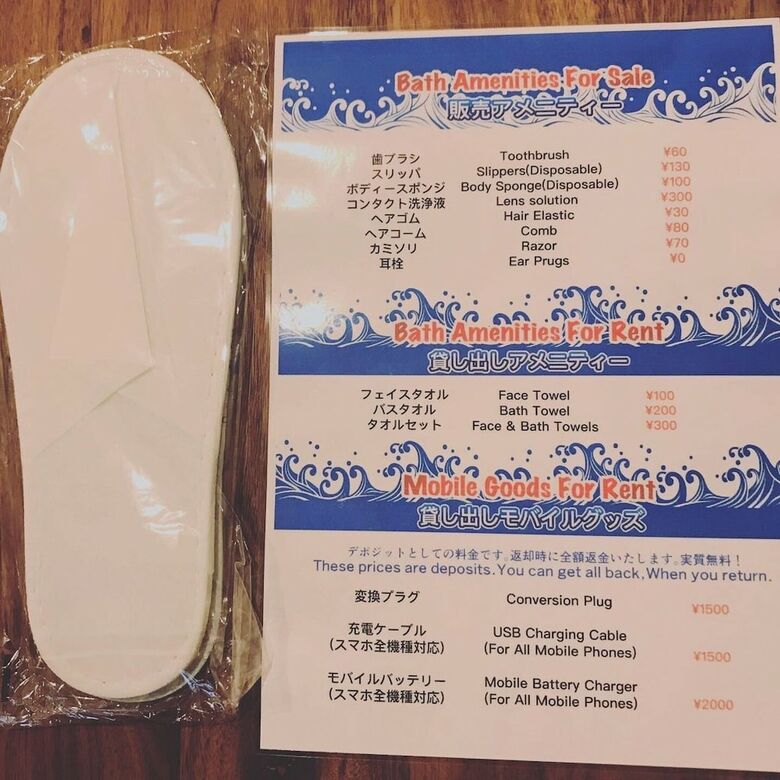 Bath Amenities For Sale
販売アメニティー
歯ブラシ Toothbrush ¥60
スリッパ Slippers(Disposable) ¥130
ボディースポンジ Body Sponge(Disposable) ¥100
コンタクト洗浄液 Lens solution ¥300
ヘアゴム Hair Elastic ¥30
ヘアコーム Comb ¥80
カミソリ Razor ¥70
耳栓 Ear Prugs ¥0
Bath Amenities For Rent
貸し出しアメニティー
フェイスタオル Face Towel ¥100
バスタオル Bath Towel ¥200
タオルセット Face & Bath Towels ¥300
Mobile Goods For Rent
貸し出しモバイルグッズ
デポジットとしての料金です。返却時に全額返金いたします。実質無料！
These prices are deposits.You can get all back,When you return.
変換プラグ Conversion Plug ¥1500
充電ケーブル USB Charging Cable
(スマホ全機種対応) (For All Mobile Phones) ¥1500
モバイルバッテリー Mobile Battery Charger
(スマホ全機種対応) (For All Mobile Phones) ¥2000